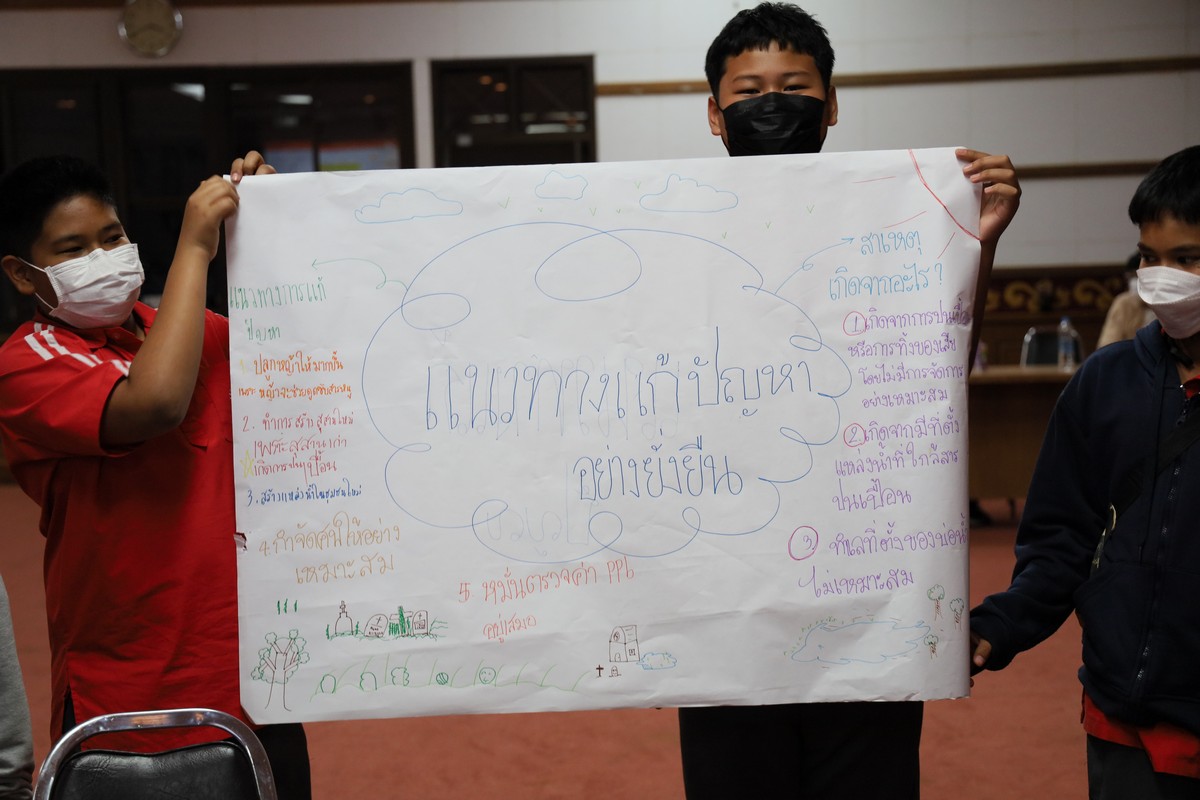 แนวทางแก้ปัญหา
อย่างยั่งยืน
แนวทางการแก้
ปัญหา
1. ปลูกหญ้าให้มากขึ้น
เพราะ หญ้าจะช่วยดูดซับสารหนู
2. ทำการ สร้าง สุสานใหม่
เพราะสุสานเก่า
เกิดการปนเปื้อน
3. สร้างแหล่งน้ำในชุมชนใหม่
4. กำจัดศพให้อย่าง
เหมาะสม
5. หมั่นตรวจค่า PPb
อยู่เสมอ
สาเหตุ
เกิดจากอะไร?
1 เกิดจากการปนเปื้อน
หรือการทิ้งของเสีย
โดยไม่มีการจัดการ
อย่างเหมาะสม
2. เกิดจากมีที่ตั้ง
แหล่งน้ำที่ใกล้สาร
ปนเปื้อน
3. ทำเลที่ตั้งของบ่อน้ำ
ไม่เหมาะสม